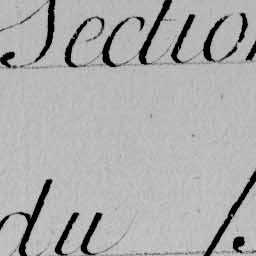 Section
du